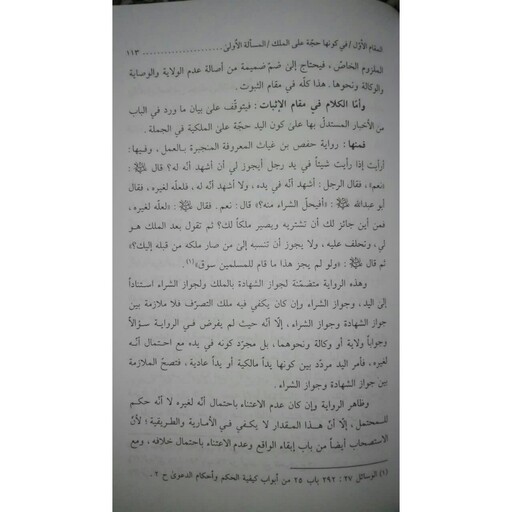 المقام الأوّل / في كونها حجّة على الملك / المسألة الأولى ........................ ١١٣
الملزوم الخاصّ ، فيحتاج إلى ضمّ ضميمة من أصالة عدم الولاية والوصاية
والوكالة ونحوها . هذا كلّه في مقام الثبوت .
وأمّا الكلام في مقام الإثبات : فيتوقّف على بيان ما ورد في الباب
من الأخبار المستدلّ بها على كون اليد حجّة على الملكية في الجملة .
فمنها: رواية حفص بن غياث المعروفة المنجبرة بالعمل ، وفيها:
أرأيت إذا رأيت شيئاً في يد رجل أيجوز لي أن أشهد أنّه له؟ قال ﷺ :
«نعم» ، فقال الرجل : أشهد أنّه في يده ، ولا أشهد أنّه له ، فلعلّه لغيره ، فقال
أبو عبدالله : «أفيحلّ الشراء منه؟» قال : نعم . فقال : «لعلّه لغيره ،
فمن أين جائز لك أن تشتريه ويصير ملكاً لك؟ ثم تقول بعد الملك هو
لي ، وتحلف عليه ، ولا يجوز أن تنسبه إلى من صار ملكه من قبله إليك؟»
ثم قال : «ولو لم يجز هذا ما قام للمسلمين سوق»(١).
وهذه الرواية متضمّنة لجواز الشهادة بالملك ولجواز الشراء استناداً
إلى اليد ، وجواز الشراء وإن كان يكفي فيه ملك التصرّف فلا ملازمة بين
جواز الشهادة وجواز الشراء ، إلّا أنّه حيث لم يفرض في الرواية سؤالاً
وجواباً ولاية أو وكالة ونحوهما ، بل مجرّد كونه في يده مع احتمال أنّه
لغيره ، فأمر اليد مردّد بين كونها يداً مالكية أو يداً عادية ، فتصحّ الملازمة
بين جواز الشهادة وجواز الشراء .
وظاهر الرواية وإن كان عدم الاعتناء باحتمال أنّه لغيره لا أنّه حكم
للمحتمل ، إلّا أنّ هذا المقدار لا يكفي في الأمارية والطريقية ؛ لأنّ
الاستصحاب أيضاً من باب إبقاء الواقع وعدم الاعتناء باحتمال خلافه ، ومع
(١) الوسائل ٢٧ : ٢٩٢ باب ٢٥ من أبواب كيفية الحكم وأحكام الدعوى ح ٢ .